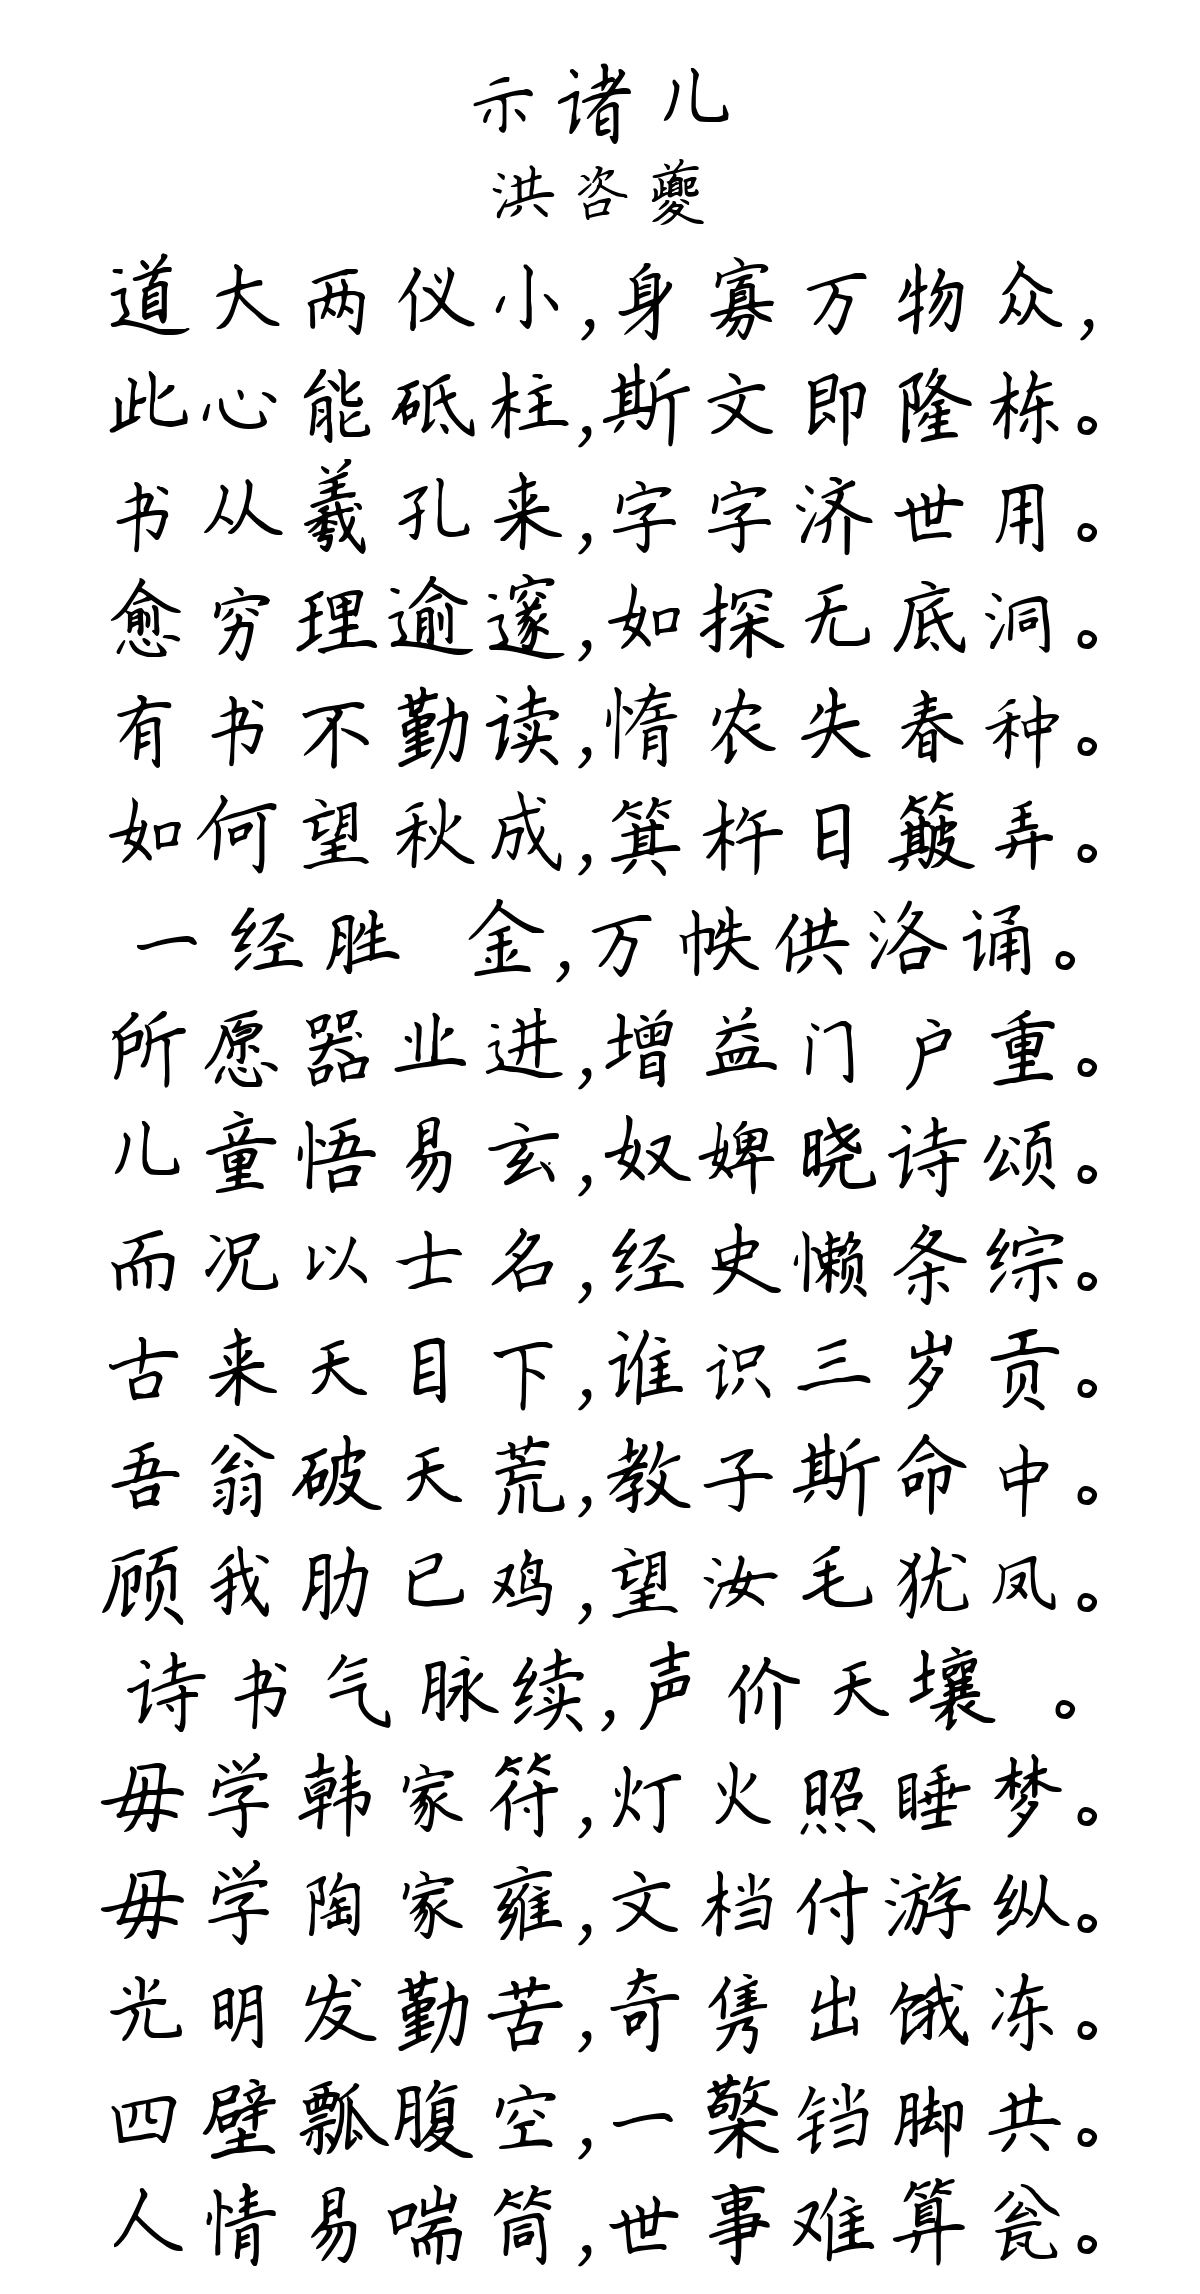 示诸儿
洪咨夔
道大两仪小,身寡万物众,
此心能砥柱,斯文即隆栋。
书从羲孔来,字字济世用。
愈穷理逾邃,如探无底洞。
有书不勤读,惰农失春种。
如何望秋成,箕杵日簸弄。
一经胜 金,万帙供洛诵。
所愿器业进,增益门户重。
儿童悟易玄,奴婢晓诗颂。
而况以士名,经史懒条综。
古来天目下,谁识三岁贡。
吾翁破天荒,教子斯命中。
顾我肋已鸡,望汝毛犹凤。
诗书气脉续,声价天壤 。
毋学韩家符,灯火照睡梦。
毋学陶家雍,文档付游纵。
光明发勤苦,奇隽出饿冻。
四壁瓢腹空,一檠铛脚共。
人情易喘筒,世事难算瓮。